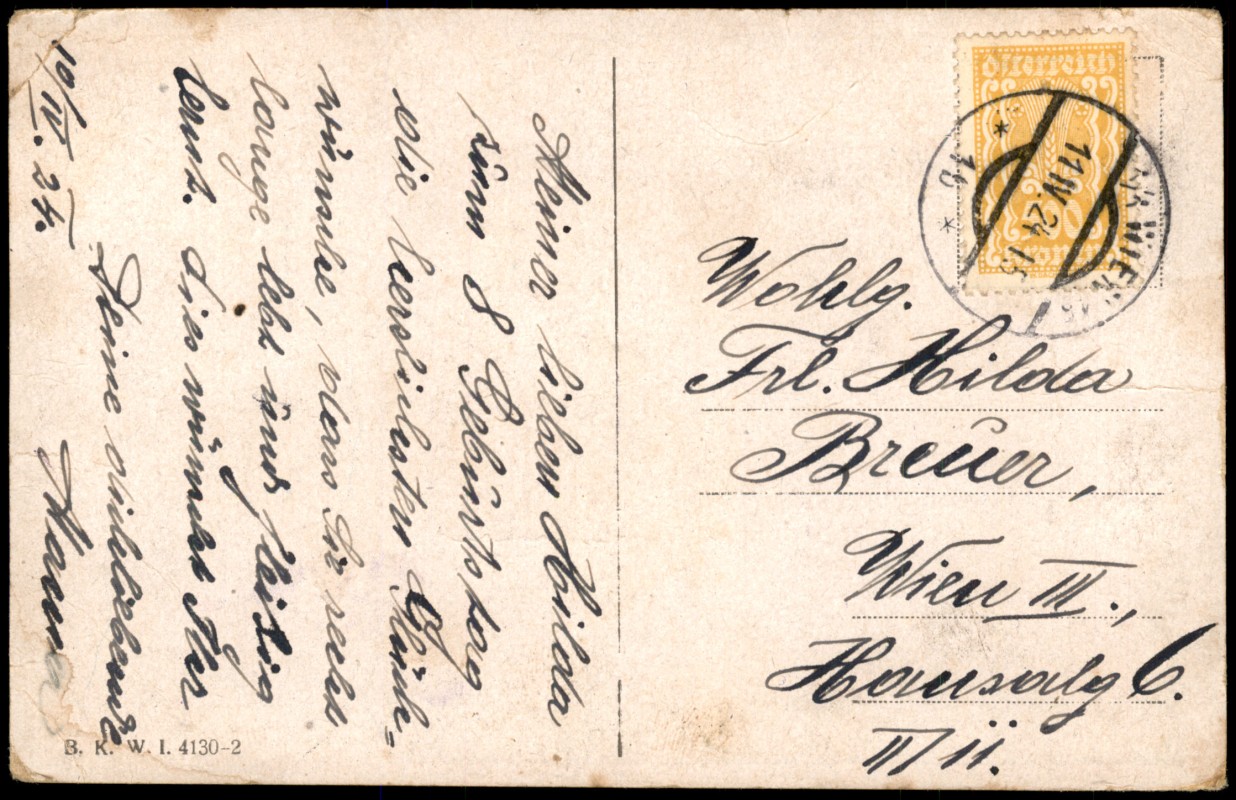 10/IV. 24.
Meiner lieben Hilda
zum 8 Gebürtstag
die herzlichsten Glück-
wünsche, dass Du recht
lange lebst und fleißig
lernst. dies wünscht Dir
Deine dich liebende
Mama
B. K. W. I. 4130-2
Österreich
Kronen
11 IV. 24
WIEN
Wohlg.
Frl. Hilda
Breuer,
Wien III.,
Hansalg 6.
II/11.